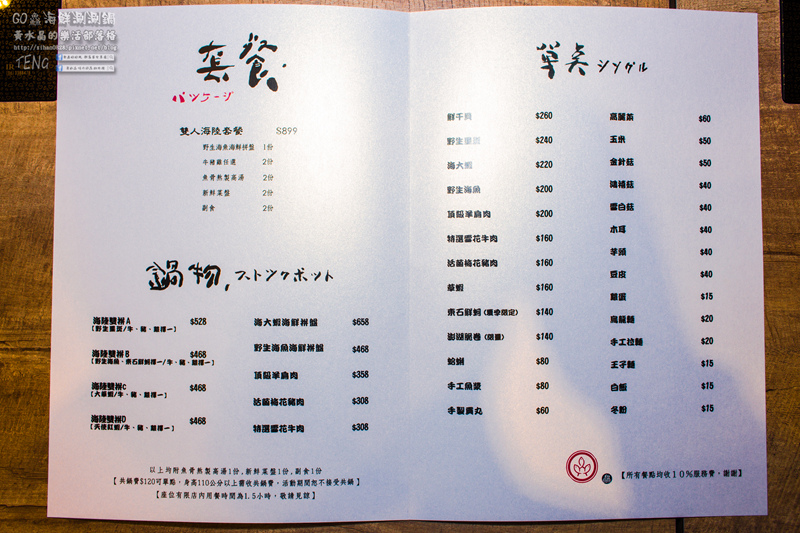 GO 海鮮涮涮鍋
黃水晶的樂活部落格
TENG
套餐
パッケージ
雙人海陸套餐 $899
野生海魚海鮮拼盤 1份
牛豬雞任選 2份
魚骨熬製高湯 2份
新鮮菜盤 2份
副食 2份
鍋物, ストックポット
海陸雙拼A $528
【野生軍斑/牛、豬、雞擇一】
海陸雙拼B $468
【野生海魚、東石鮮蚵擇一/牛、豬、雞擇一】
海陸雙拼C $468
【大草蝦/牛、豬、雞擇一】
海陸雙拼D $468
【天使紅蝦/牛、豬、雞擇一】
海大蝦海鮮拼盤 $658
野生海魚海鮮拼盤 $468
頂級羊肩肉 $358
活菌梅花豬肉 $308
特選雪花牛肉 $308
以上均附魚骨熬製高湯1份,新鮮菜盤1份,副食1份
【共鍋費$120可單點，身高110公分以上需收共鍋費，活動期間恕不接受共鍋】
【座位有限店內用餐時間為1.5小時，敬請見諒】
單点 シングル
鮮干貝 $260
野生軍斑 $240
海大蝦 $220
野生海魚 $200
頂級羊肩肉 $200
特選雪花牛肉 $160
活菌梅花豬肉 $160
草蝦 $160
東石鮮蚵（夏季限定） $140
澎湖脆卷（限量） $140
蛤蜊 $80
手工魚漿 $80
手製貢丸 $60
高麗菜 $60
玉米 $50
金針菇 $50
鴻禧菇 $40
雪白菇 $40
木耳 $40
芋頭 $40
豆皮 $40
雞蛋 $15
烏龍麵 $20
手工拉麵 $20
王子麵 $15
白飯 $15
冬粉 $15
【所有餐點均收10%服務費，謝謝】